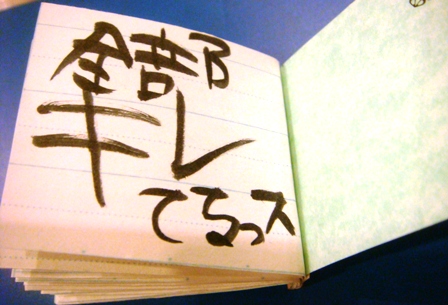 全部
キレ
てるっス